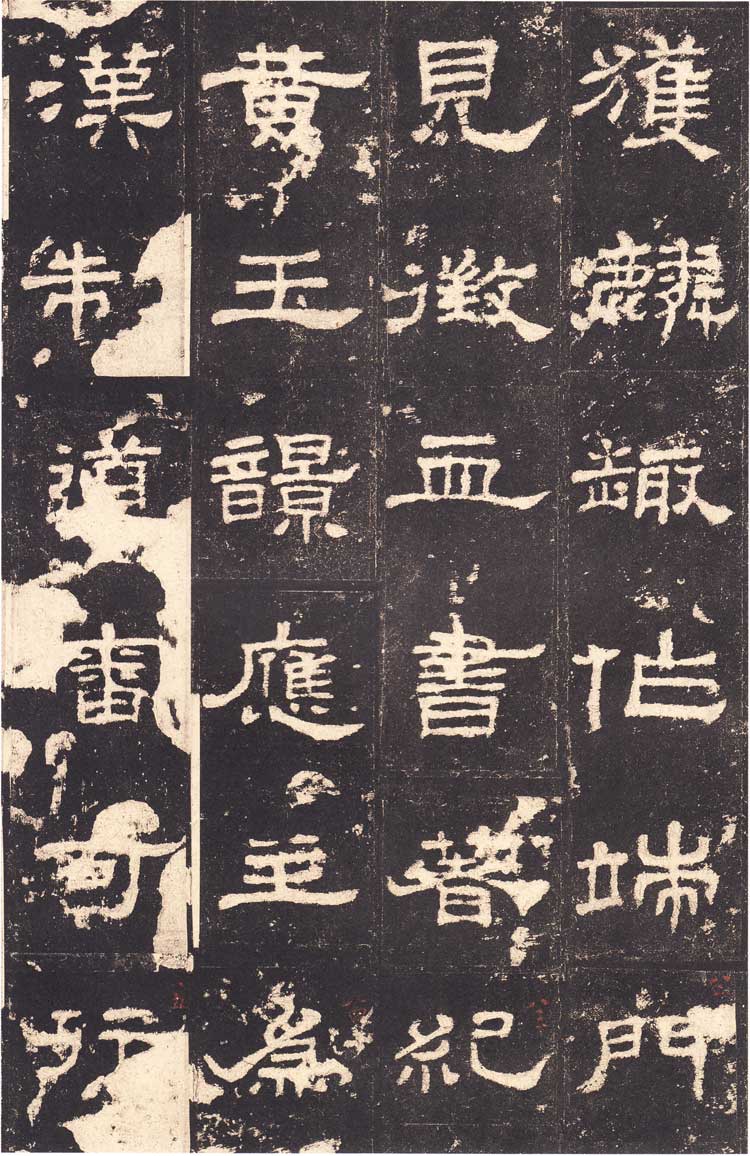 獲麟趣作端門
見徵血書著紀
黃玉響應主為
漢制道審可行